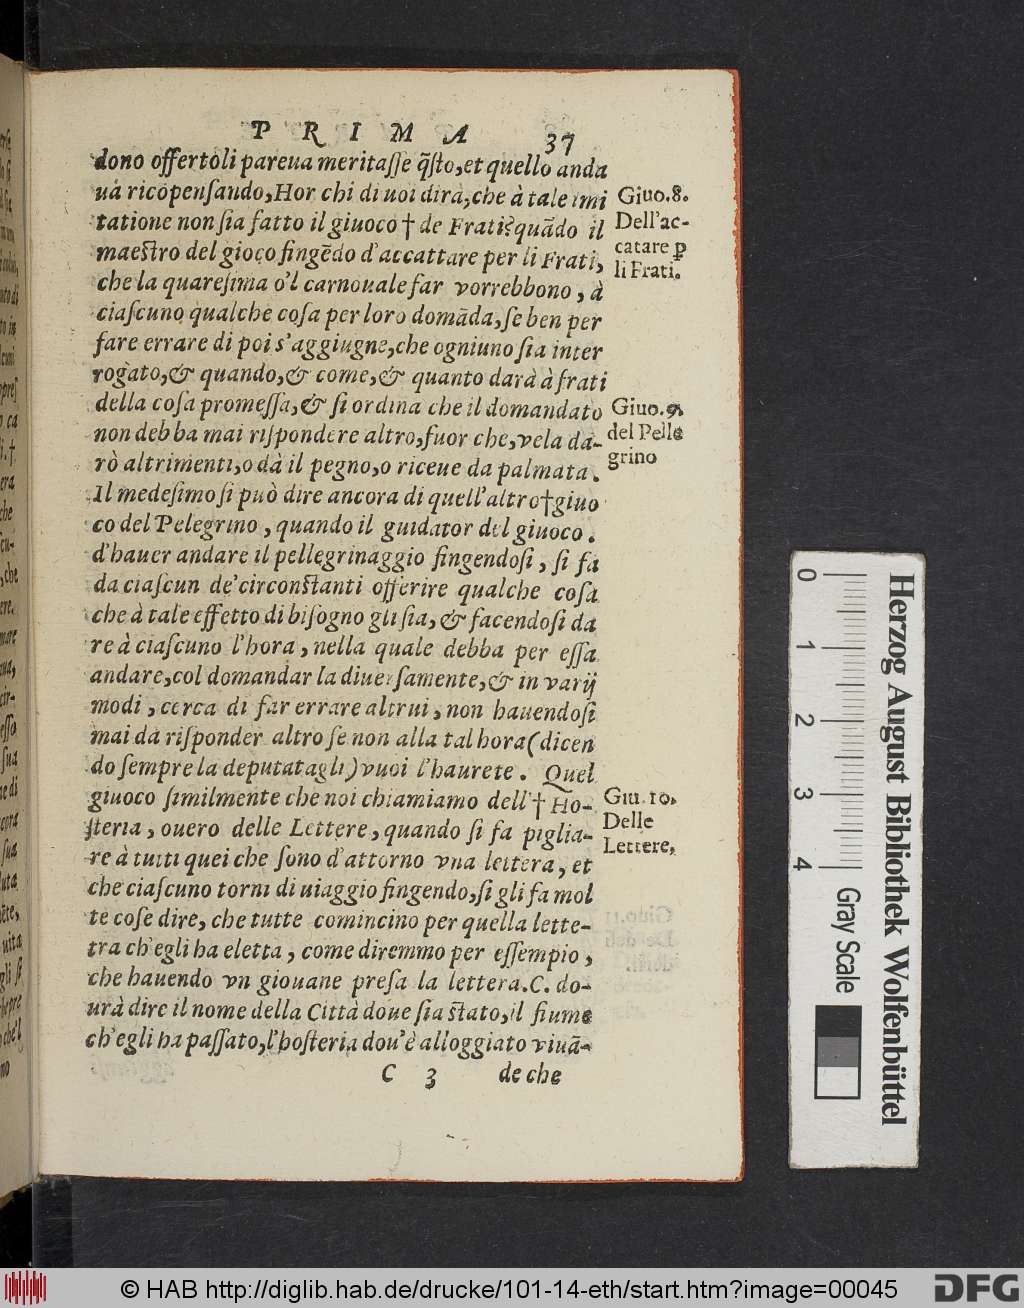 PRIMA 37
dono offertoli pareua meritaſſe q̃ſto,et quello anda
uà ricõpenſando,Hor chi di uoi dirà,che à tale imi
tatione non ſia fatto il giuoco † de Frati? quãdo il
maeſtro del gioco fingẽdo d'accattare per li Frati,
che la quareſima o'l carnouale far vorrebbono, à
ciaſcuno qualche coſa per loro domãda,ſe ben per
fare errare di poi s'aggiugne,che ogniuno ſia inter
rogato,& quando,& come,& quanto darà à frati
della coſa promeſſa,& ſi ordina che il domandato
non debba mai riſpondere altro,fuor che,vela da-
rò altrimenti,o dà il pegno,o riceue da palmata.
Il medeſimo ſi può dire ancora di quell'altro†giuo
co del Pelegrino, quando il guidator del giuoco.
d'hauer andare il pellegrinaggio fingendoſi, ſi fà
da ciaſcun de'circonſtanti offerire qualche coſa
che à tale effetto di biſogno gli ſia,& facendoſi da
re à ciaſcuno l'hora, nella quale debba per eſſa
andare,col domandar la diuerſamente,& in varij
modi, cerca di far errare altrui, non hauendoſi
mai da riſponder altro ſe non alla tal hora(dicen
do ſempre la deputatagli) vuoi l'haurete. Quel
giuoco ſimilmente che noi chiamiamo dell'† Ho-
ſteria, ouero delle Lettere, quando ſi fa piglia-
re à tutti quei che ſono d'attorno vna lettera, et
che ciaſcuno torni di uiaggio fingendo,ſi gli fa mol
te coſe dire, che tutte comincino per quella lette-
tra ch'egli ha eletta, come diremmo per eſſempio,
che hauendo vn giouane preſa la lettera.C. do-
urà dire il nome della Città doue ſia ſtato,il fiume
ch'egli ha paſſato,l'hoſteria dou'è alloggiato viuã-
C 3 de che
Giuo.8.
Dell'ac-
catare ꝑ
li Frati.
Giuo.9.
del Pelle
grino
Giu.10.
Delle
Lettere,
0 1 2 3 4
Herzog August Bibliothek Wolfenbüttel
Gray Scale
© HAB http://diglib.hab.de/drucke/101-14-eth/start.htm?image=00045
DFG